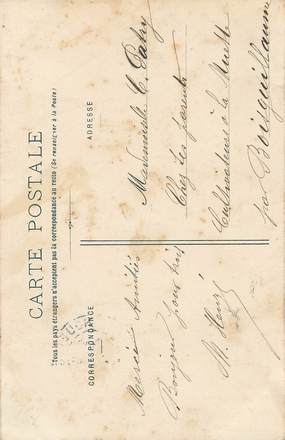 CARTE POSTALE
Tous les pays étrangers n'acceptent pas la correspondance au recto (Se renseigner à la Poste)
CORRESPONDANCE
ADRESSE
Merci Amitiés
Bonjour pour tous
M. Henry
Mademoiselle C. Patry
Chez ses parents
Cultivateurs à la Muette
par Boisguillaume